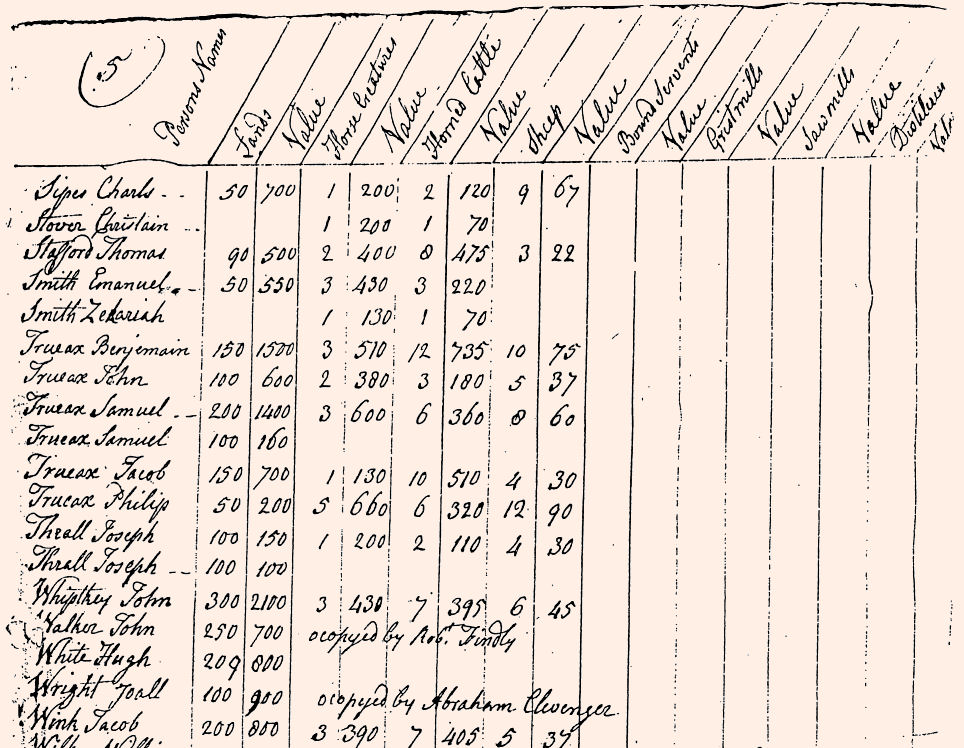 5
Persons Names Lands Value Horse Creatures Value Horned Cattle Value Sheep Value Bound Servents Value Gristmills Value Sawmills Value Distileres
Sipes Charls -- 50 700 1 200 2 120 9 67
Stover Christain -- 1 200 1 70
Stafford Thomas 90 500 2 400 8 475 3 22
Smith Emanuel -- 50 550 3 430 3 220
Smith Zekariah 1 130 1 70
Trueax Benjemain 150 1500 3 510 12 735 10 75
Trueax John 100 600 2 380 3 180 5 37
Trueax Samuel -- 200 1400 3 600 6 360 8 60
Trueax Samuel 100 160
Trueax Jacob 150 700 1 130 10 510 4 30
Trueax Philip 50 200 5 660 6 320 12 90
Thrall Joseph 100 150 1 200 2 110 4 30
Thrall Joseph -- 100 100
Whipkey John 300 2100 3 430 7 395 6 45
Walker John 250 700 ocopyed by Robt Findly
White Hugh 209 800
Wright Joall 100 900 ocopyed by Abraham Clevenger
Wink Jacob 200 800 3 390 7 405 5 37